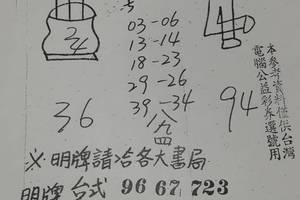 24
03-06
13-14
18-23
29-26
39-34
八
四
36
94
本參考資料僅供台灣
電腦公益彩券選號用
※明牌請洽各大書局
明牌 台式 96 67 723